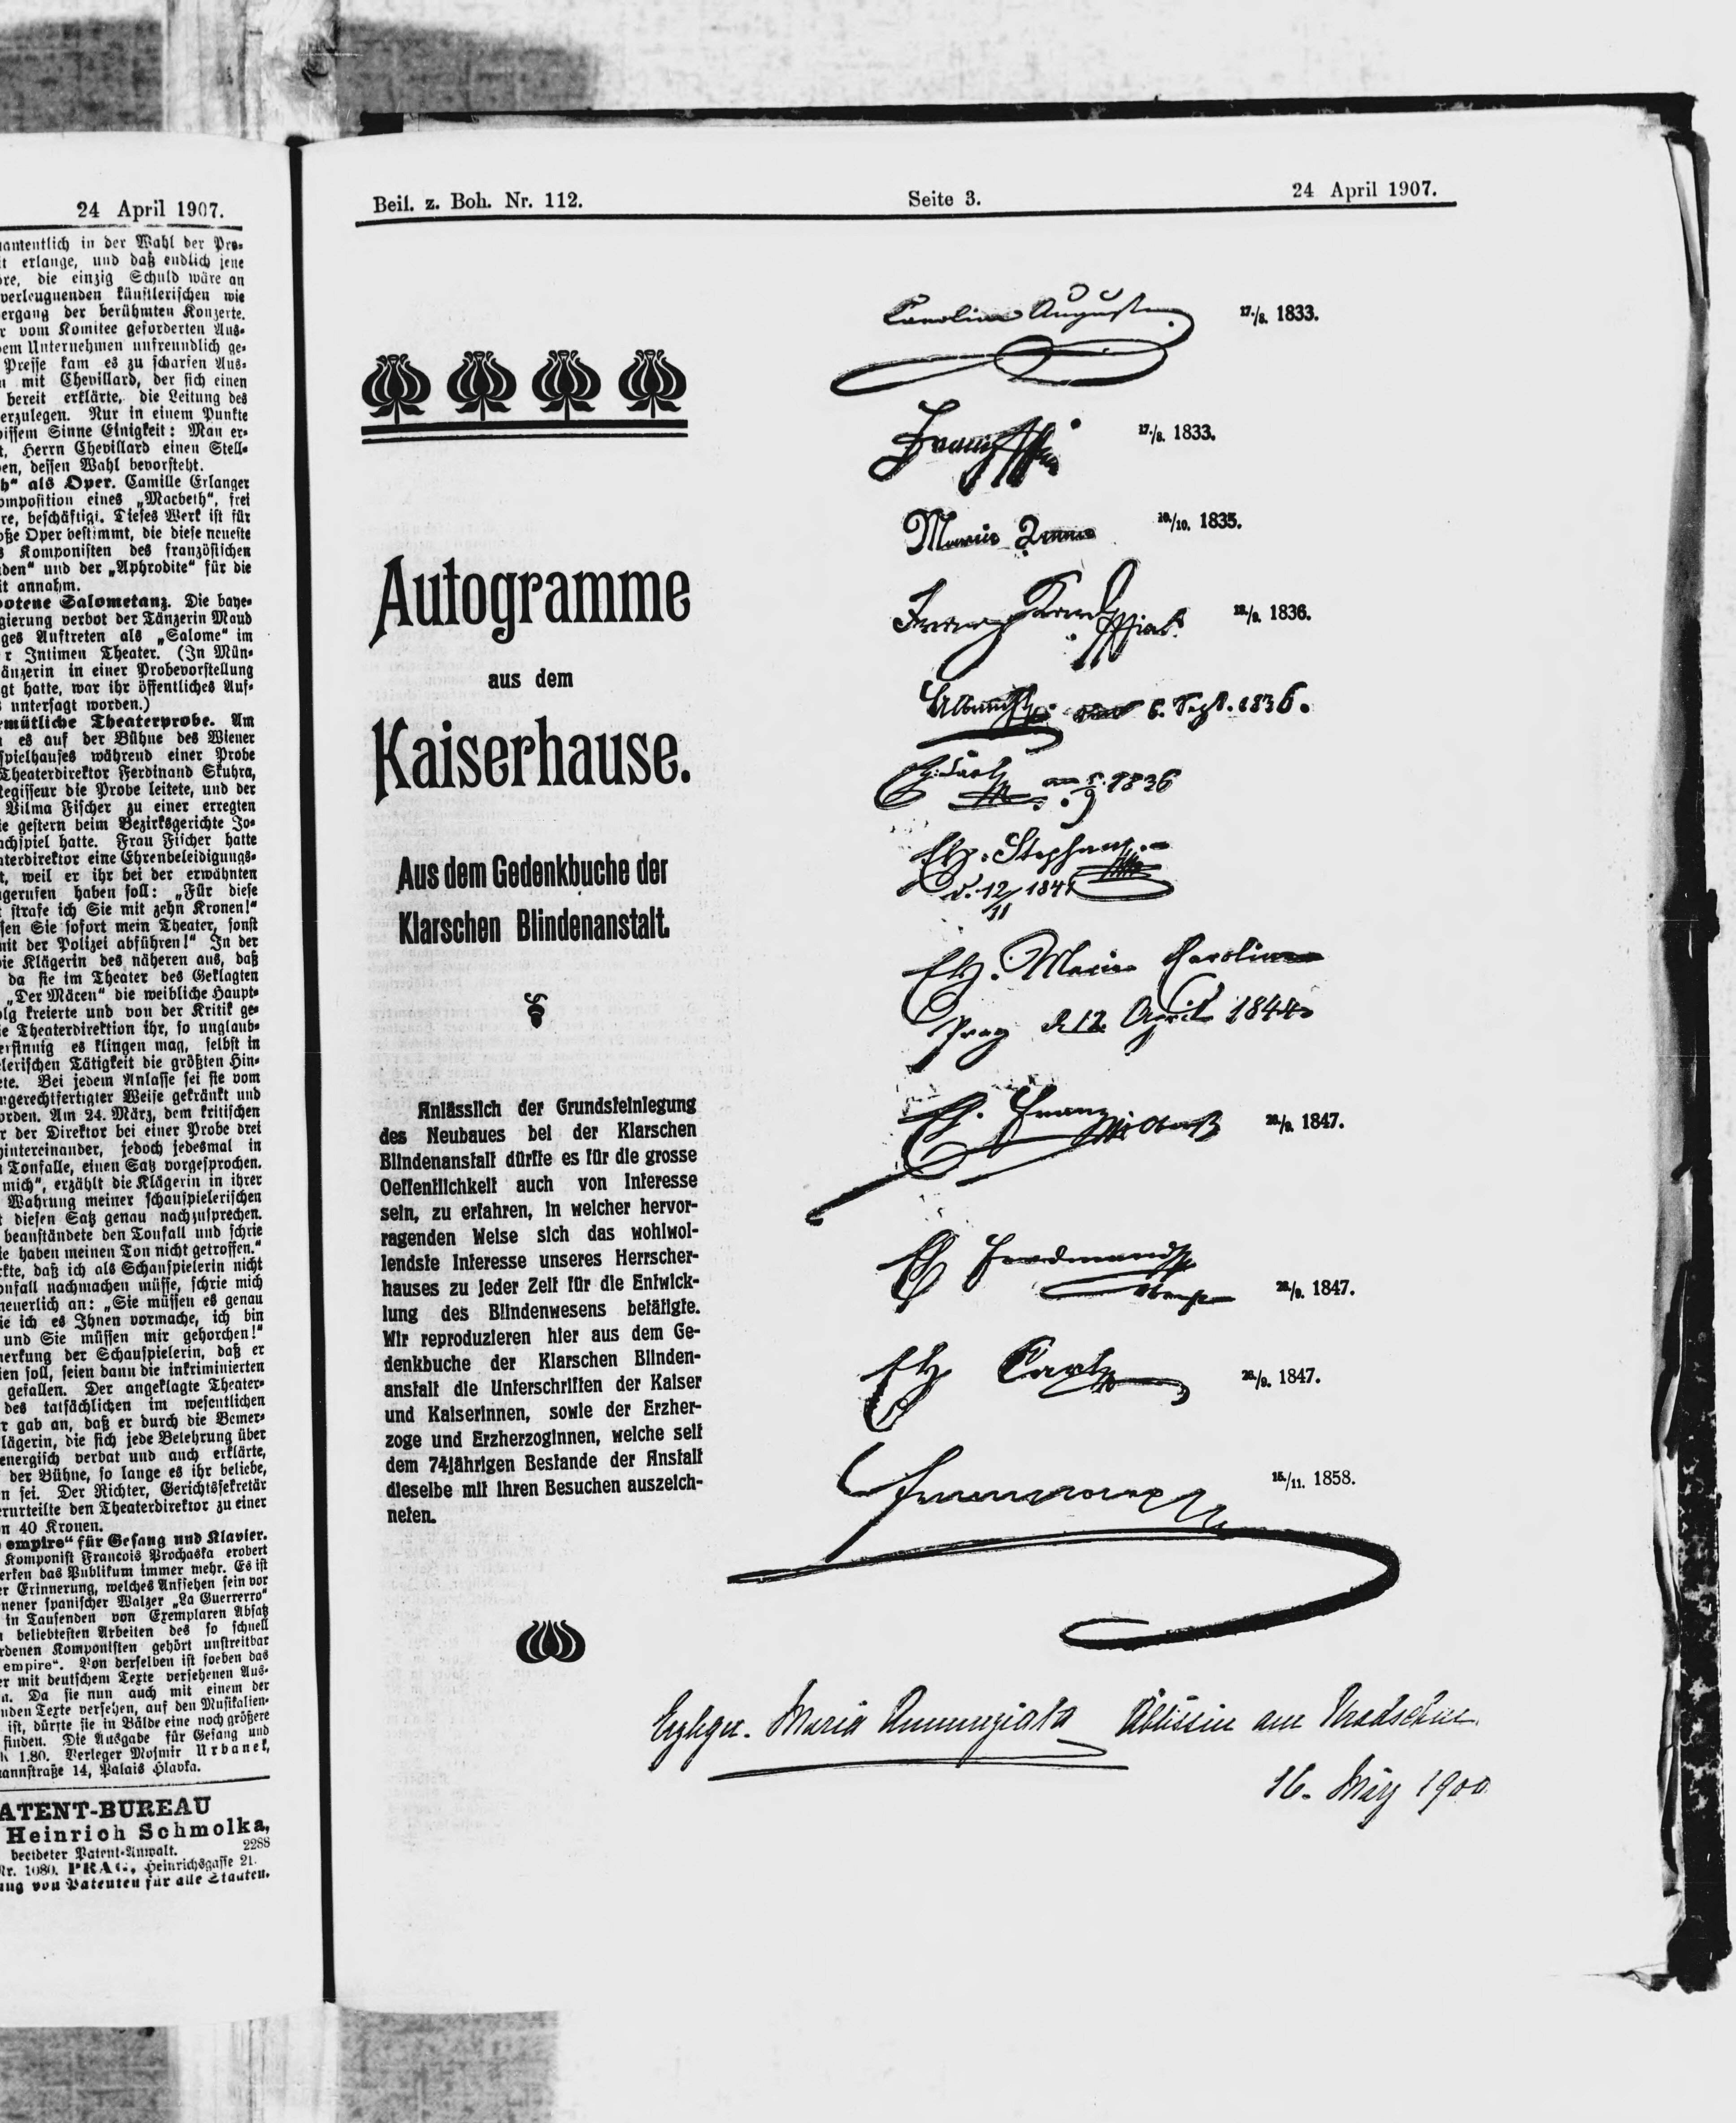 24 April 1907.
namentlich in der Wahl der Pro-
it erlange, und daß endlich jene
ore, die einzig Schuld wäre an
verleugnenden künstlerischen wie
ergang der berühmten Konzerte.
r vom Komitee geforderten Aus-
dem Unternehmen unfreundlich ge-
Presse kam es zu scharfen Aus-
n mit Chevillard, der sich einen
bereit erklärte, die Leitung des
erzulegen. Nur in einem Punkte
wissem Sinne Einigkeit: Man er-
t, Herrn Chevillard einen Stell-
ben, dessen Wahl bevorsteht.
h“ als Oper. Camille Erlanger
omposition eines „Macbeth“, frei
re, beschäftigt. Dieses Werk ist für
oße Oper bestimmt, die diese neueste
s Komponisten des französischen
den“ und der „Aphrodite“ für die
it annahm.
botene Salometanz. Die baye-
gierung verbot der Tänzerin Maud
ges Auftreten als „Salome“ im
r Intimen Theater. (In Mün-
änzerin in einer Probevorstellung
gt hatte, war ihr öffentliches Auf-
untersagt worden.)
emütliche Theaterprobe. Am
es auf der Bühne des Wiener
spielhauses während einer Probe
Theaterdirektor Ferdinand Skuhra,
Regisseur die Probe leitete, und der
Vilma Fischer zu einer erregten
ie gestern beim Bezirksgerichte Jo-
achspiel hatte. Frau Fischer hatte
aterdirektor eine Ehrenbeleidigungs-
t, weil er ihr bei der erwähnten
gerufen haben soll: „Für diese
strafe ich Sie mit zehn Kronen!“
sen Sie sofort mein Theater, sonst
mit der Polizei abführen!“ In der
die Klägerin des näheren aus, daß
da sie im Theater des Geklagten
„Der Mäcen“ die weibliche Haupt-
olg kreierte und von der Kritik ge-
ie Theaterdirektion ihr, so unglaub-
ersinnig es klingen mag, selbst in
lerischen Tätigkeit die größten Hin-
ete. Bei jedem Anlasse sei sie vom
ngerechtfertigter Weise gekränkt und
orden. Am 24. März, dem kritischen
r der Direktor bei einer Probe drei
hintereinander, jedoch jedesmal in
Tonfalle, einen Satz vorgesprochen.
mich“, erzählt die Klägerin in ihrer
Wahrung meiner schauspielerischen
diesen Satz genau nachzusprechen.
beanständete den Tonfall und schrie
ie haben meinen Ton nicht getroffen.“
rkte, daß ich als Schauspielerin nicht
onfall nachmachen müsse, schrie mich
neuerlich an: „Sie müssen es genau
ie ich es Ihnen vormache, ich bin
und Sie müssen mir gehorchen!“
merkung der Schauspielerin, daß er
ien soll, seien dann die inkriminierten
gefallen. Der angeklagte Theater-
des tatsächlichen im wesentlichen
r gab an, daß er durch die Bemer-
lägerin, die sich jede Belehrung über
energisch verbat und auch erklärte,
der Bühne, so lange es ihr beliebe,
n sei. Der Richter, Gerichtssekretär
erurteilte den Theaterdirektor zu einer
n 40 Kronen.
empire“ für Gesang und Klavier.
Komponist Francois Prochaska erobert
erken das Publikum immer mehr. Es ist
er Erinnerung, welches Aufsehen sein vor
nener spanischer Walzer „La Guerrerro“
in Tausenden von Exemplaren Absatz
beliebtesten Arbeiten des so schnell
rdenen Komponisten gehört unstreitbar
empire“. Von derselben ist soeben das
er mit deutschem Texte versehenen Aus-
n. Da sie nun auch mit einem der
nden Texte versehen, auf den Musikalien-
ist, dürfte sie in Bälde eine noch größere
finden. Die Ausgabe für Gesang und
K 1.80. Verleger Mojmir Urbanek,
annstraße 14, Palais Hlavka.
ATENT-BUREAU
Heinrich Schmolka,
beeideter Patent-Anwalt. 2288
Nr. 1080. PRAG, Heinrichsgasse 21.
ung von Patenten für alle Staaten.
Beil. z. Boh. Nr. 112. Seite 3. 24 April 1907.
Autogramme
aus dem
Kaiserhause.
Aus dem Gedenkbuche der
Klarschen Blindenanstalt.
Anlässlich der Grundsteinlegung
des Neubaues bei der Klarschen
Blindenanstalt dürfte es für die grosse
Oeffentlichkeit auch von Interesse
sein, zu erfahren, in welcher hervor-
ragenden Weise sich das wohlwol-
lendste Interesse unseres Herrscher-
hauses zu jeder Zeit für die Entwick-
lung des Blindenwesens betätigte.
Wir reproduzieren hier aus dem Ge-
denkbuche der Klarschen Blinden-
anstalt die Unterschriften der Kaiser
und Kaiserinnen, sowie der Erzher-
zoge und Erzherzoginnen, welche seit
dem 74jährigen Bestande der Anstalt
dieselbe mit ihren Besuchen auszeich-
neten.
Carolina Augusta 17./8. 1833.
Franz 17./8. 1833.
Maria Anna 10./10. 1835.
Franz Carl 1836.
Albrecht 6. Sept. 1836.
Carl 1836
Eh. Stephan
d. 12/11 1841
Eh. Maria Carolina
Prag d. 12. April 1844
Eh. Franz 1847.
Eh Ferdinand 1847.
Eh Carl 1847.
15./11. 1858.
Erzhgn. Maria Annunziata Äbtissin am Hradschin
16. März 1900